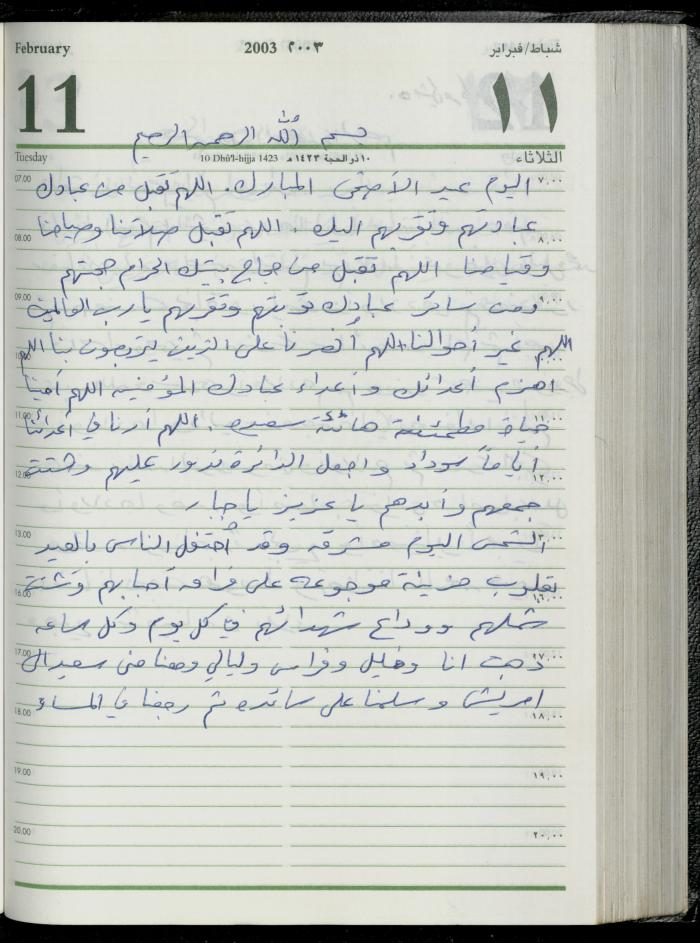 February 2003 ٢٠٠٣ شباط/فبراير
11 ١١
بسم الله الرحمن الرحيم
Tuesday 10 Dhû'l-hijja 1423 ١٠ ذو الحجة ١٤٢٣ هـ الثلاثاء
07.00 ٧,٠٠
اليوم عيد الأضحى المبارك. اللهم تقبل من عبادك
عبادتهم وتقربهم اليك. اللهم تقبل صلاتنا وصيامنا
08.00 ٨,٠٠
وقيامنا اللهم تقبل من حجاج بيتك الحرام حجتهم
09.00 ٩,٠٠
ومن سائر عبادك توبتهم وتقربهم يا رب العالمين
اللهم غير أحوالنا اللهم أنصرنا على الذين يتربصون بنا اللهم
10.00 ١٠,٠٠
اهزم أعدائك وأعداء عبادك المؤمنين اللهم أحينا
11.00 ١١,٠٠
حياة مطمئنة هانئة سعيده. اللهم أرنا في أعدائنا
أياماً سوداء واجعل الدائرة تدور عليهم وشتت
12.00 ١٢,٠٠
جمعهم وأبدهم يا عزيز يا جبار
13.00 ١٣,٠٠
الشمس اليوم مشرقه وقد أحتفل الناس بالعيد
بقلوب حزينة موجوعه على فراق أحبابهم وتشتت
16.00 ١٦,٠٠
شملهم ووداع شهدائهم في كل يوم وكل ساعه
17.00 ١٧,٠٠
ذهبت انا وخليل وفراس وليالي ومنى سعيد الى
امريش وسلمنا على سائده ثم رجعنا في المساء
18.00 ١٨,٠٠
19.00 ١٩,٠٠
20.00 ٢٠,٠٠